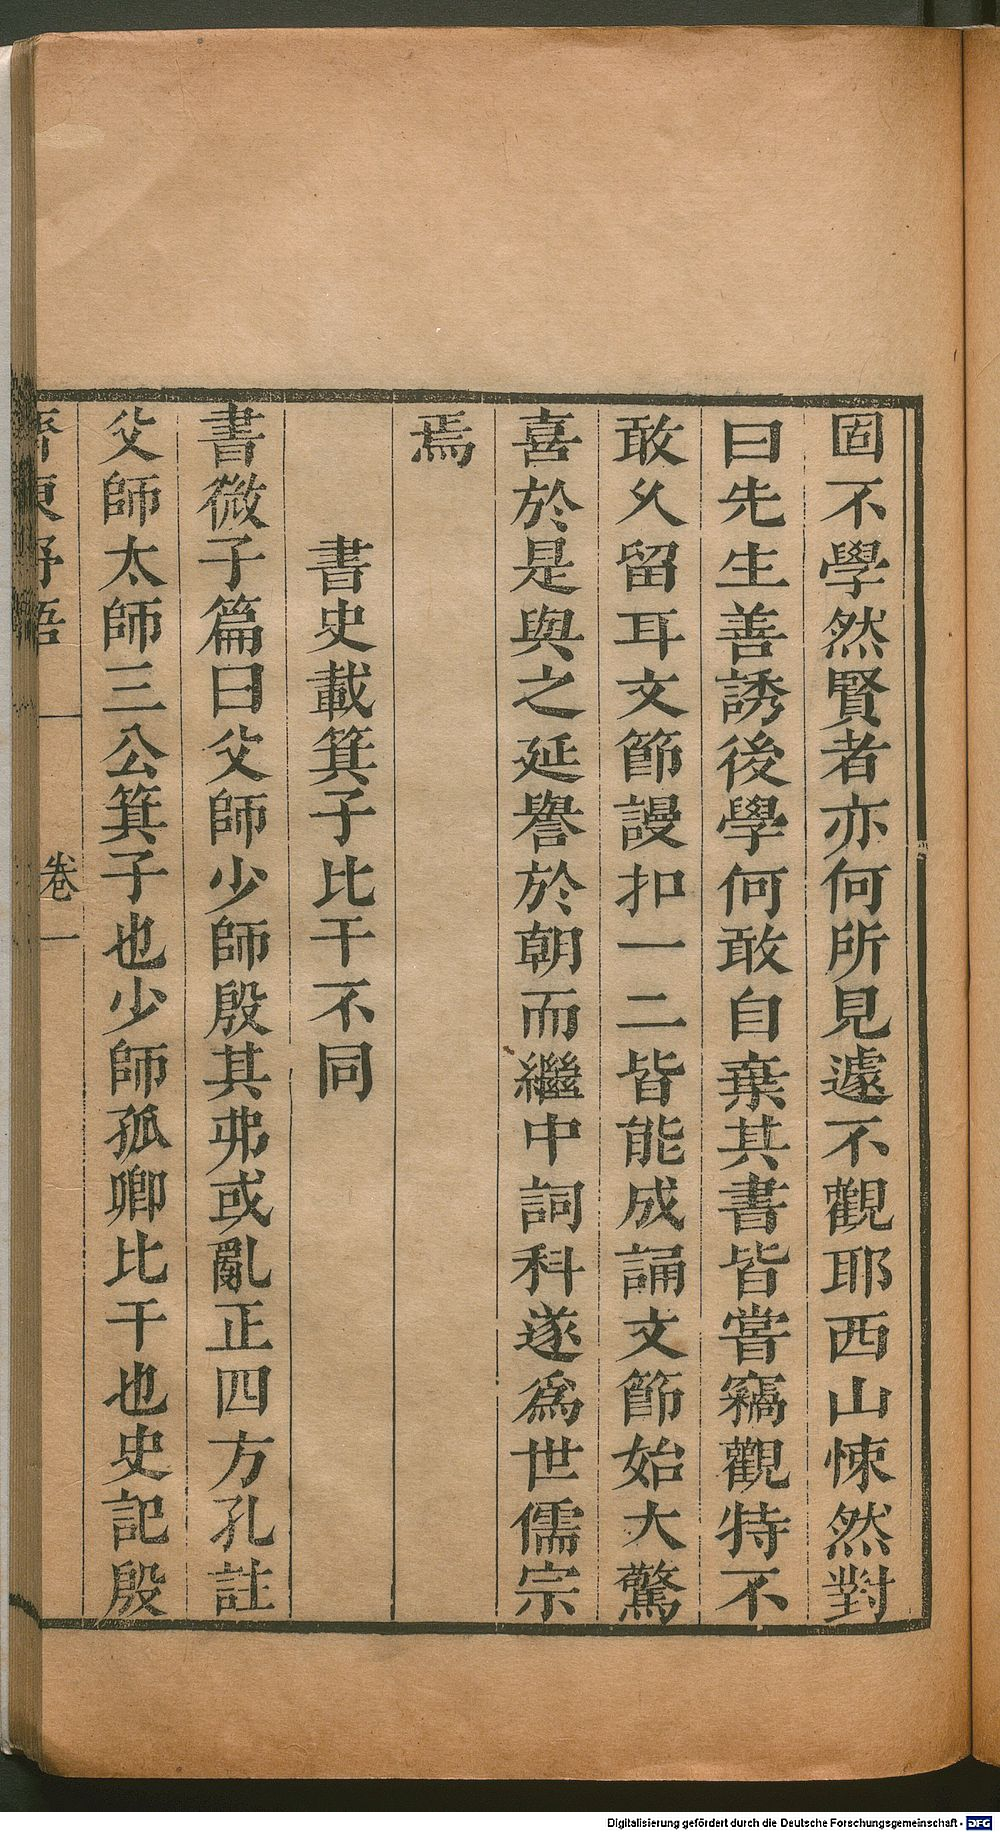 固不學然賢者亦何所見遽不觀耶西山悚然對
曰先生善誘後學何敢自棄其書皆嘗竊觀特不
敢乆留耳文節謾扣一二皆能成誦文節始大驚
喜於是與之延譽於朝而繼中詞科遂爲世儒宗
焉
書史載箕子比干不同
書微子篇曰父師少師殷其弗或亂正四方孔註
父師太師三公箕子也少師孤卿比干也史記殷
齊東野語 卷一
Digitalisierung gefördert durch die Deutsche Forschungsgemeinschaft - DFG